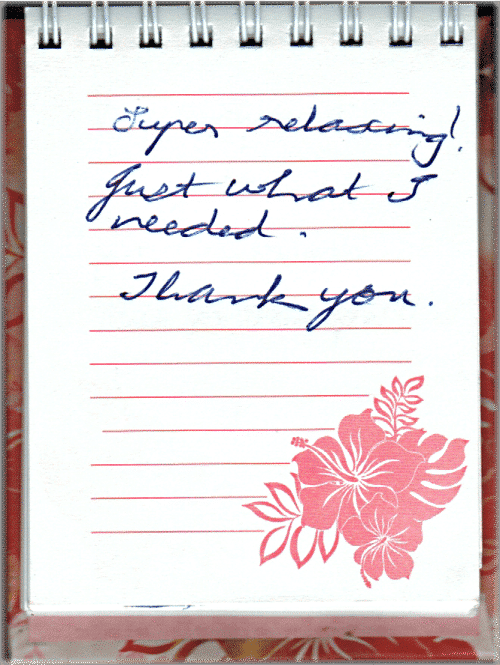 Super relaxing!
Just what I
needed.
Thank you.